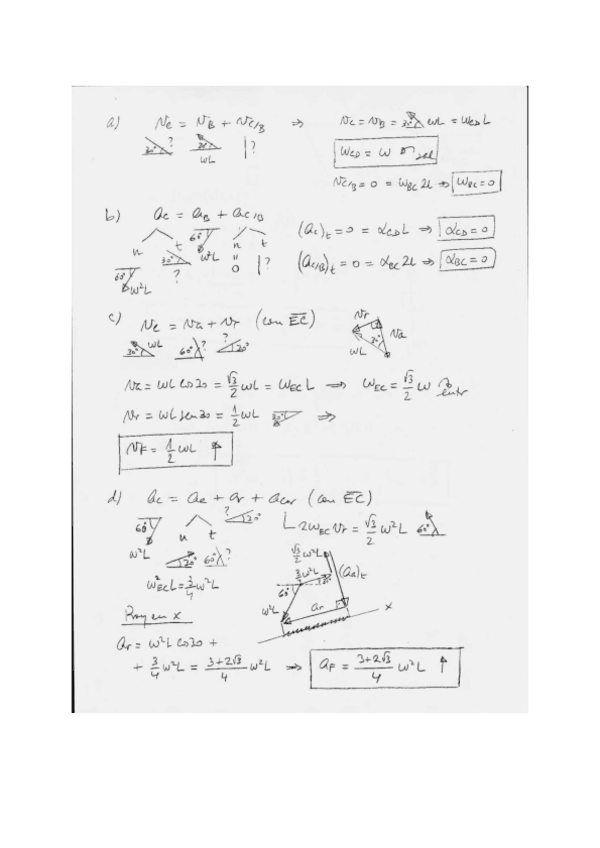 a) v_c = v_B + v_C/B ⇒ v_c = v_B = 30° ωL = ω_CD L
30° ? 30° ωL | ?
ω_CD = ω
v_C/B = 0 = ω_BC 2L ⇒ ω_BC = 0
b) a_c = a_B + a_C/B (a_c)_t = 0 = α_CD L ⇒ α_CD = 0
n t 60° ω²L n t
60° ω²L 30° ? " 0 | ? (a_C/B)_t = 0 = α_BC 2L ⇒ α_BC = 0
c) v_c = v_a + v_r (con EC)
30° ωL 60° ? ? 30°
v_r v_a 30° ωL
v_a = ωL cos30 = √3/2 ωL = ω_EC L ⇒ ω_EC = √3/2 ω
v_r = ωL sen30 = 1/2 ωL 30° ⇒
v_F = 1/2 ωL ↑
d) a_c = a_a + a_r + a_cor (con EC)
60° ω²L n t ? 30° 2ω_EC v_r = √3/2 ω²L 60°
30° 60° ?
ω²_EC L = 3/4 ω²L
√3/2 ω²L 3/4 ω²L (a_a)_t 60° ω²L a_r x
Proy en x
a_r = ω²L cos30 +
+ 3/4 ω²L = 3+2√3/4 ω²L ⇒ a_F = 3+2√3/4 ω²L ↑